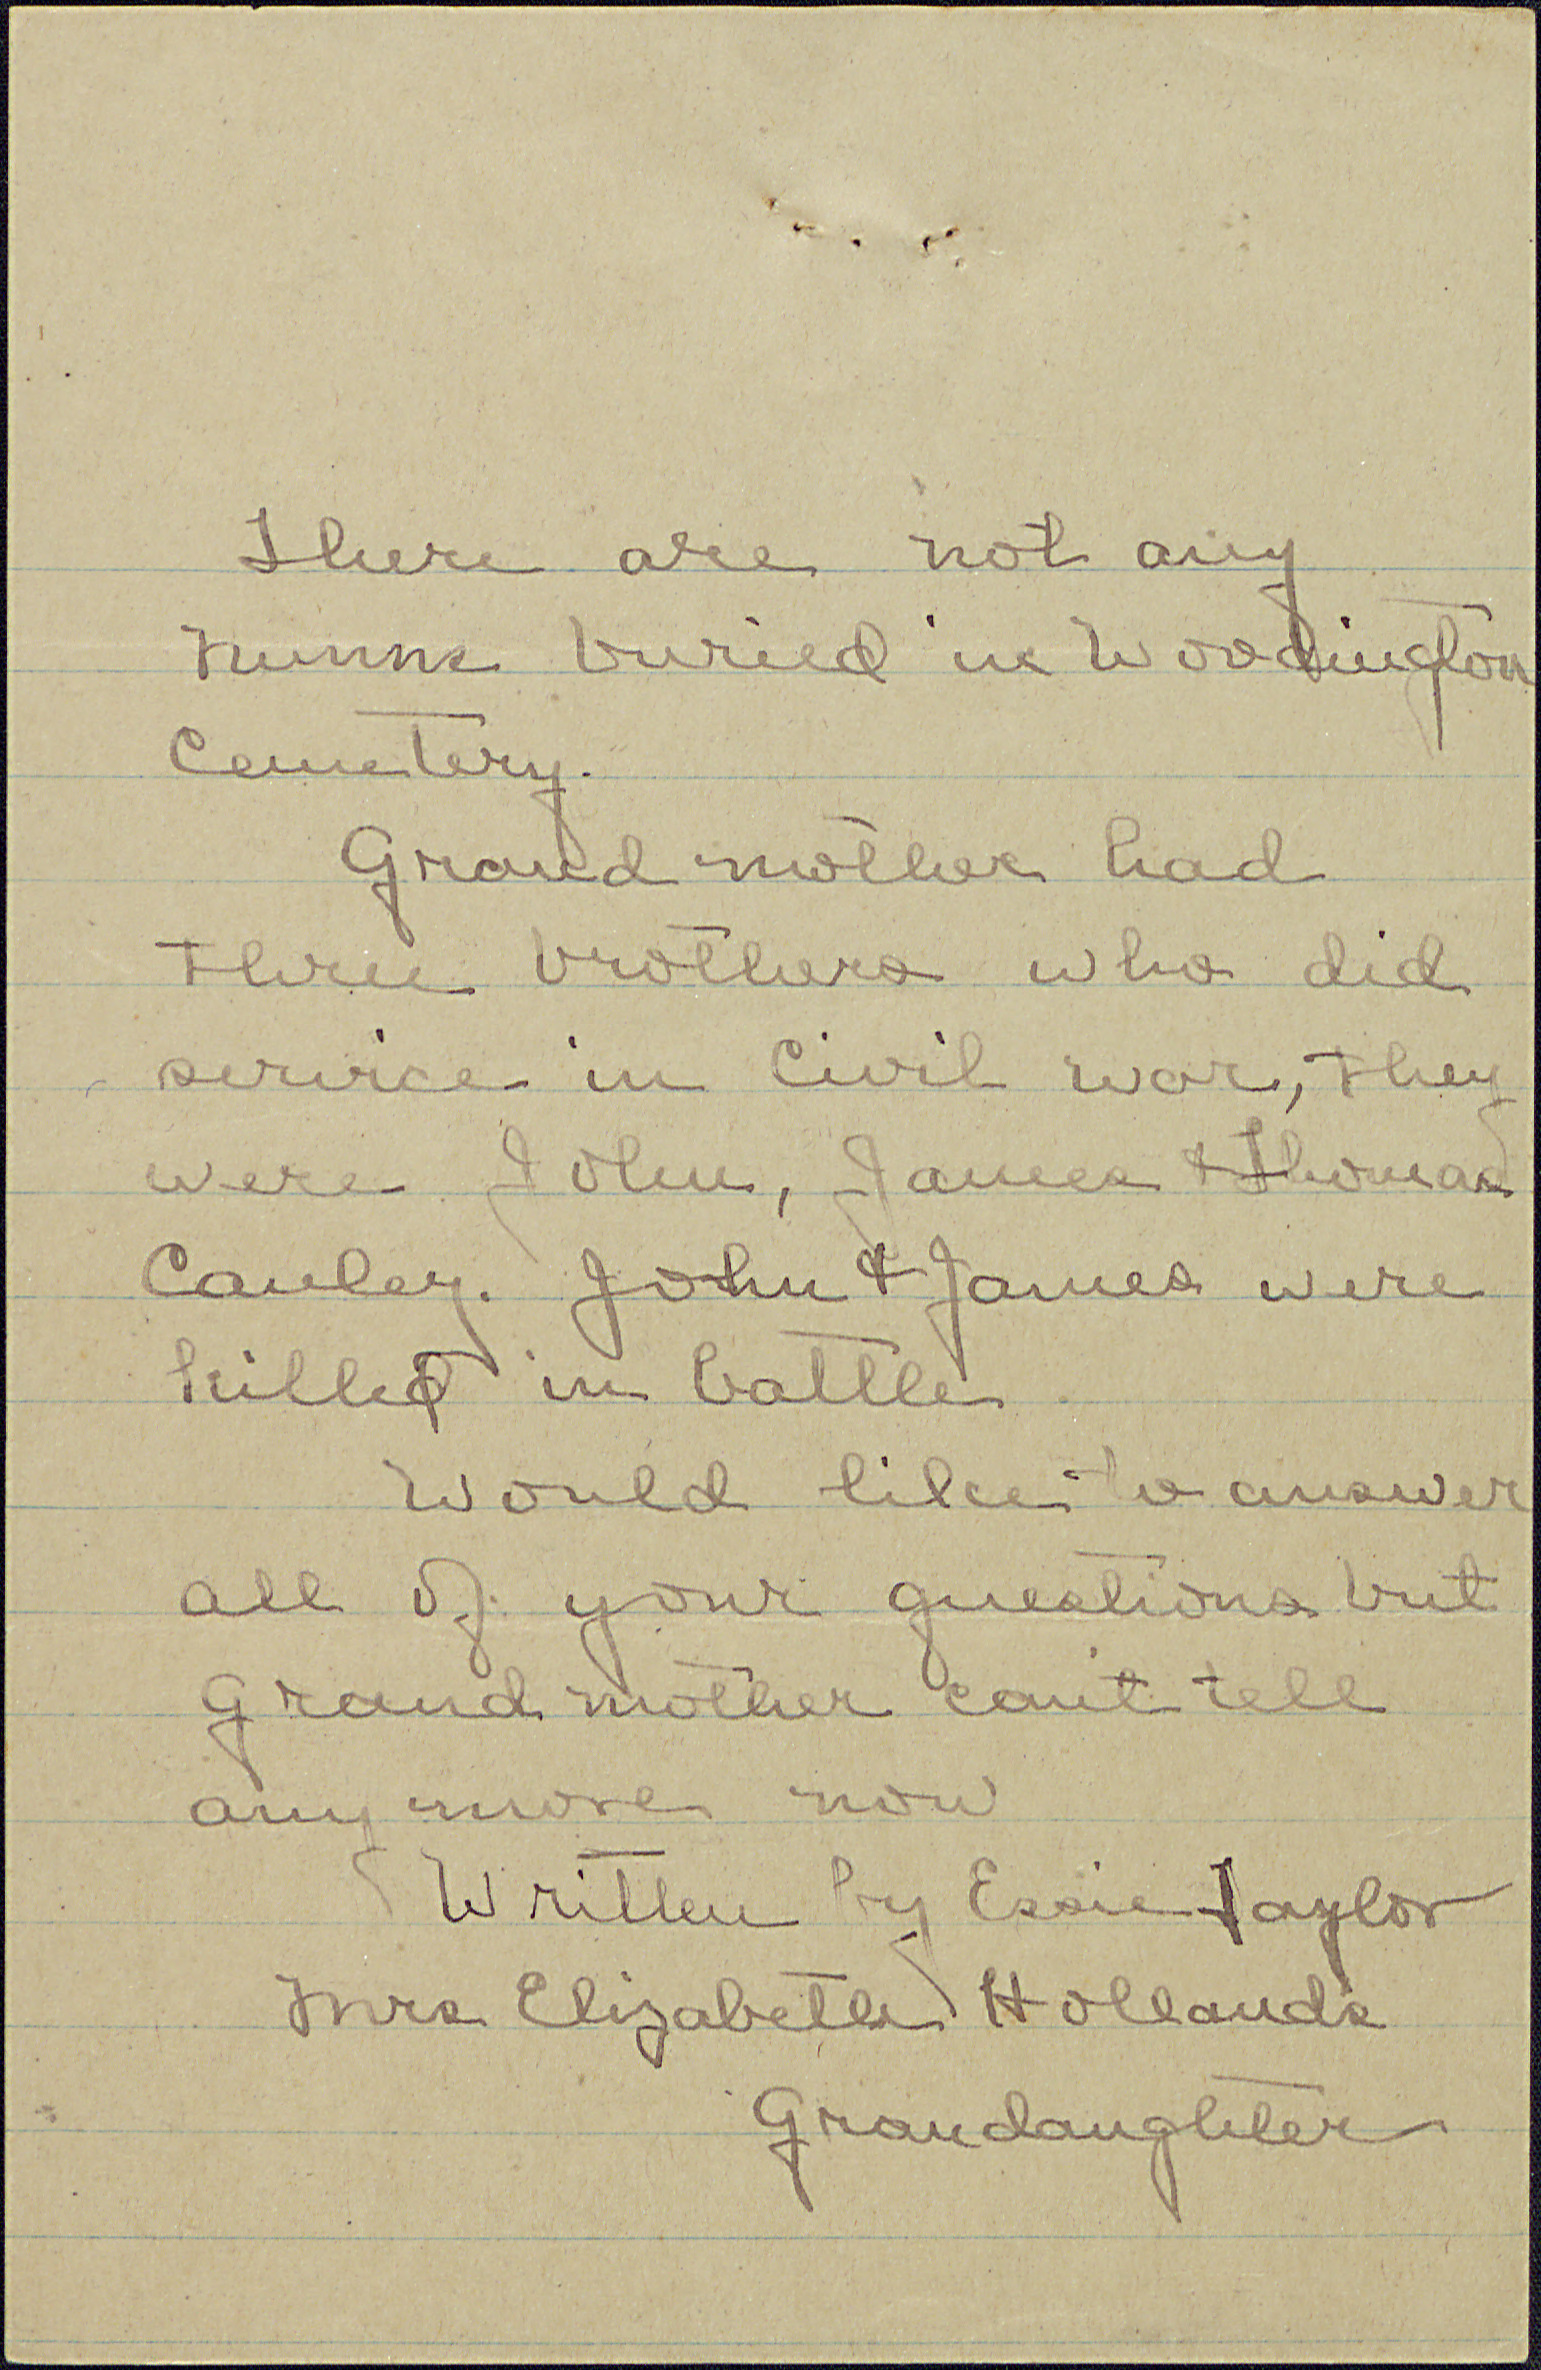 There are not any
Nunns buried in Woodington
Cemetery.
Grand mother had
three brothers who did
service in Civil war, they
were John, James & Thomas
Cauley. John & James were
killed in battle
Would like to answer
all of your questions but
Grand mother can't tell
any more now
Written by Essie Taylor
Mrs Elizabeth Holland's
Grandaughter